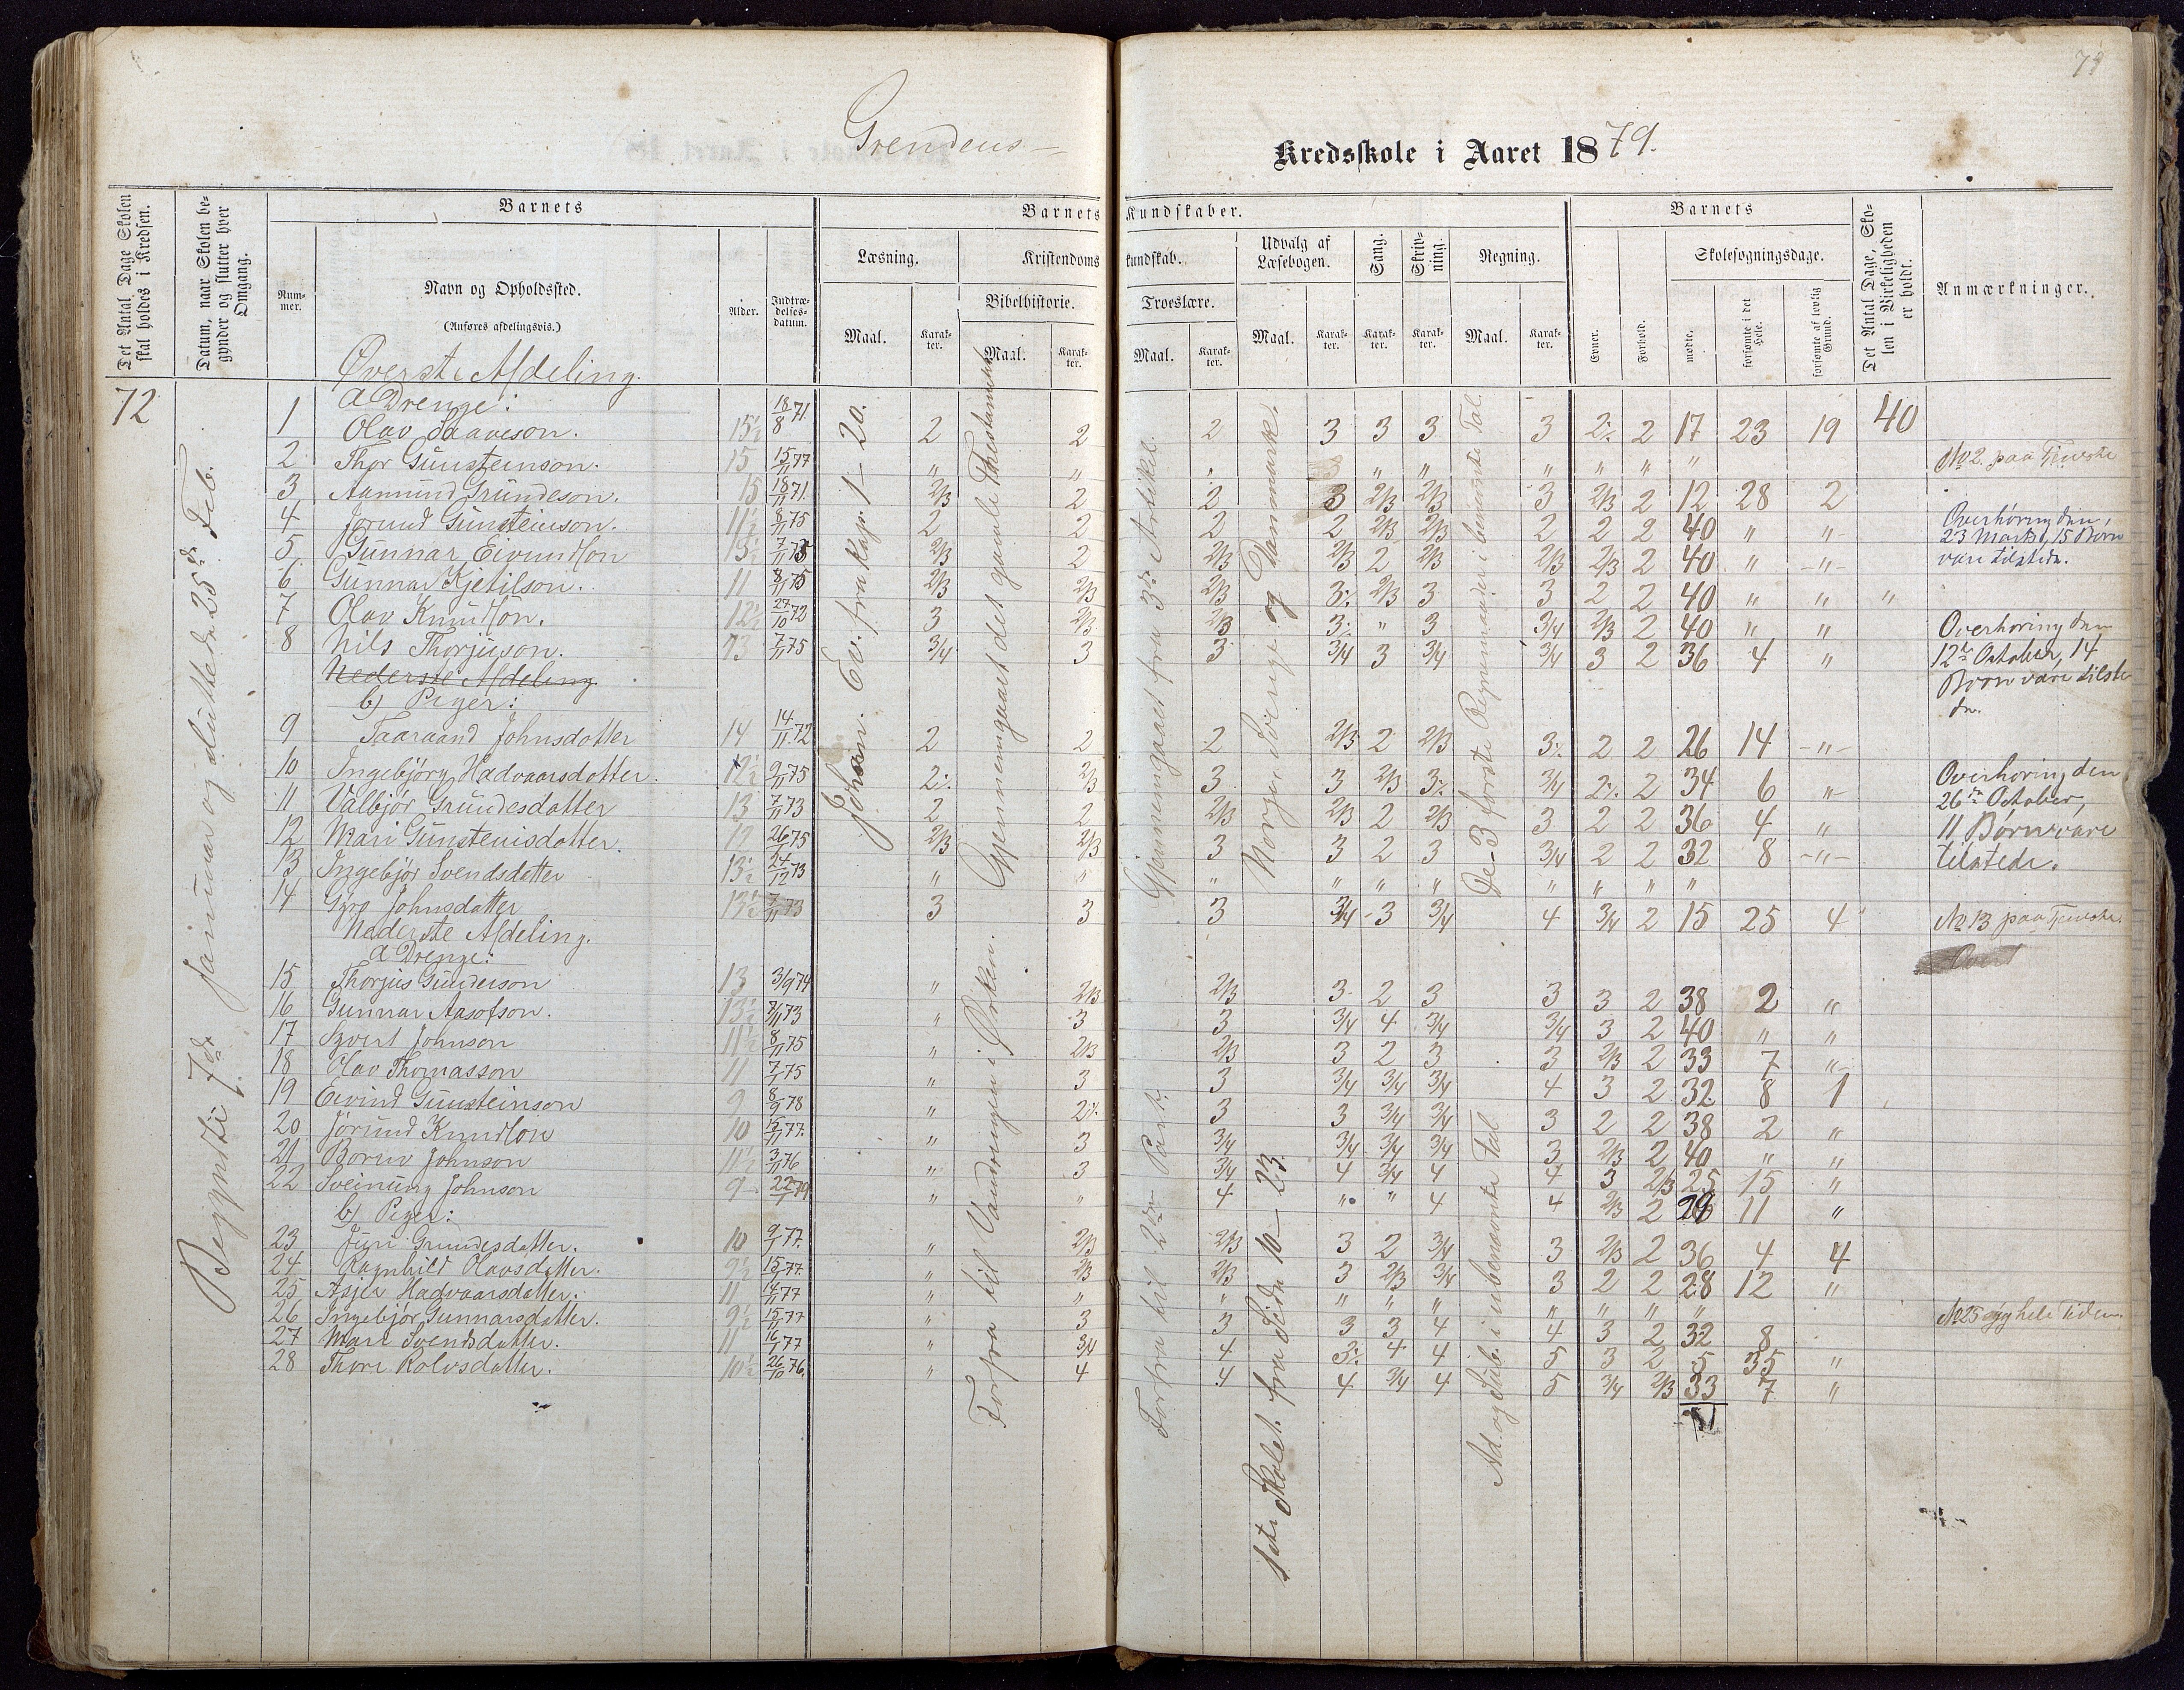 79
Grendens
Kredsskole i Aaret 1879.
Det Antal Dage Skolen skal holdes i Kredsen.
Datum, naar Skolen begynder og slutter hver Omgang.
Barnets
Nummer.
Navn og Opholdssted.
(Anføres afdelingsvis.)
Alder.
Indtrædelsesdatum.
Barnets Kundskaber.
Læsning.
Maal.
Karakter.
Kristendomskundskab.
Bibelhistorie.
Maal.
Karakter.
Troeslære.
Maal.
Karakter.
Udvalg af Læsebogen.
Maal.
Karakter.
Sang.
Karakter.
Skrivning.
Karakter.
Regning.
Maal.
Karakter.
Barnets
Evner.
Forhold.
Skolesøgningsdage.
mødte.
forsømte i det Hele.
forsømte af lovlig Grund.
Det Antal Dage, Skolen i Virkeligheden er holdt.
Anmærkninger.
72
Begyndte 7de januar og sluttede 25de Feb.
Johan. Ev. fra Kap. 1–20.
Gjennemgaaet det gamle Thestamente
Forfra til Vandringen i Ørken.
Gjennemgaaet fra 3die Artikel.
Forfra til 2den Part.
Norge, Sverige og Danmark.
1ste Skolet. fra Side 10–23.
De 3 første Regnemaader i benævnte Tal.
Ad. og Sub. i ubenævnte Tal
Øverste Afdeling.
a Drenge:
1 Olav Saaveson. 15½ 18/8 71. 2 2 2 3 3 3 3 2 17 23 19 40
2 Thor Gunsteinson. 15 15/11 77 " " " " " " " " No 2. paa Tjeneste
3 Aamund Grundeson. 15 18/11 71 2/3 2 2 3 2/3 2/3 3 2/3 2 12 28 2
4 Jørund Gunsteinson. 11½ 8/11 75 2 2 2 2 2/3 2/3 2 2 2 40 " "
5 Gunnar Eivindson 13½ 7/11 73 2/3 2 2/3 2/3 2 2/3 2/3 2/3 2 40 " "
6 Gunnar Kjetilson. 11 8/11 75 2/3 2/3 2/3 2/3 3 3 2 2 40 " " "
7 Olav Knudson. 12½ 27/10 72 3 2/3 2/3 " 3 3/4 2/3 2 40 " "
8 Nils Thorjuson. 13 7/11 75 3/4 3 3 3/4 3 3/4 3/4 3 2 36 4 "
Overhøring den 23 Marts, 15 Børn vare tilstede.
Overhøring den 12te October, 14 Børn vare tilstede.
Nederste Afdeling
b) Piger:
9 Taaraand Johnsdotter 14 14/11 72 2 2 2 2/3 2 2/3 2 2 26 14 "
10 Ingebjørg Hadvaarsdotter. 12½ 9/11 75 2/3 3 3 2/3 3/4 2 34 6 "
11 Valbjør Grundesdatter 13 7/11 73 2 2 2/3 2/3 2 2/3 3 2 2 36 4 "
12 Mari Gunsteinsdotter. 26/1 75 2/3 2/3 3 3 2 3 3/4 2 2 32 8 "
13 Ingebjør Svendsdotter 13½ 24/12 73 " " " " " " " " " "
14 Gyro Johnsdatter 13½ 7/11 73 3 3 3 3/4 3 3/4 4 3/4 2 15 25 4
Overhøring den 26de October, 11 Børn vare tilstede.
No 13 paa Tjeneste.
Nederste Afdeling.
a Drenge:
15 Thorjus Gunderson 13 3/9 74 " 2/3 2/3 3 2 3 3 3 2 38 2 "
16 Gunnar Aasofson. 13½ 8/11 73 " 3 3 3/4 4 3/4 3/4 3 2 40 " "
17 Johnson 11½ 8/11 75 " 2/3 2/3 3 2 3 3 2/3 2 33 7 "
18 Olav Thomasson 11 7/1 75 " 3 3 3/4 3/4 3/4 4 3 2 32 8 1
19 Eivind Gunsteinson 9 8/9 78 " 3 3 3/4 3/4 3 2 2 38 2 "
20 Jørund Knudson 10 15/11 77. " 3 3/4 3/4 3/4 3/4 3 2/3 2 40 " "
21 Johnson 11½ 3/11 76 " 3 3/4 4 3/4 4 4 3 2/3 25 15 "
22 Sveinung Johnson 9 22/1 79 " " 4 " " 4 4 2/3 2 29 11 "
b) Piger:
23 Grundesdatter. 10 9/1 77. " 2/3 2/3 3 2 3/4 3 2/3 2 36 4 4
24 Ragnhild Olavsdatter. 9½ 15/1 77. " 2/3 2/3 3 2/3 3/4 3 2 2 28 12 "
25 Hadvaarsdatter. 11 14/11 77 " " " " " " " " " " No 25 syg hele Tiden.
26 Ingebjør Gunnarsdatter. 9½ 15/11 77 " 3 3 3 3 4 4 3 2 32 8
27 Mari Svendsdatter. 11 16/1 77 " 3/4 4 4 4 5 3 2 5 35 "
28 Thore Rolvsdatter. 10½ 26/10 76. " 4 4 4 3/4 4 5 3/4 2/3 33 7 "